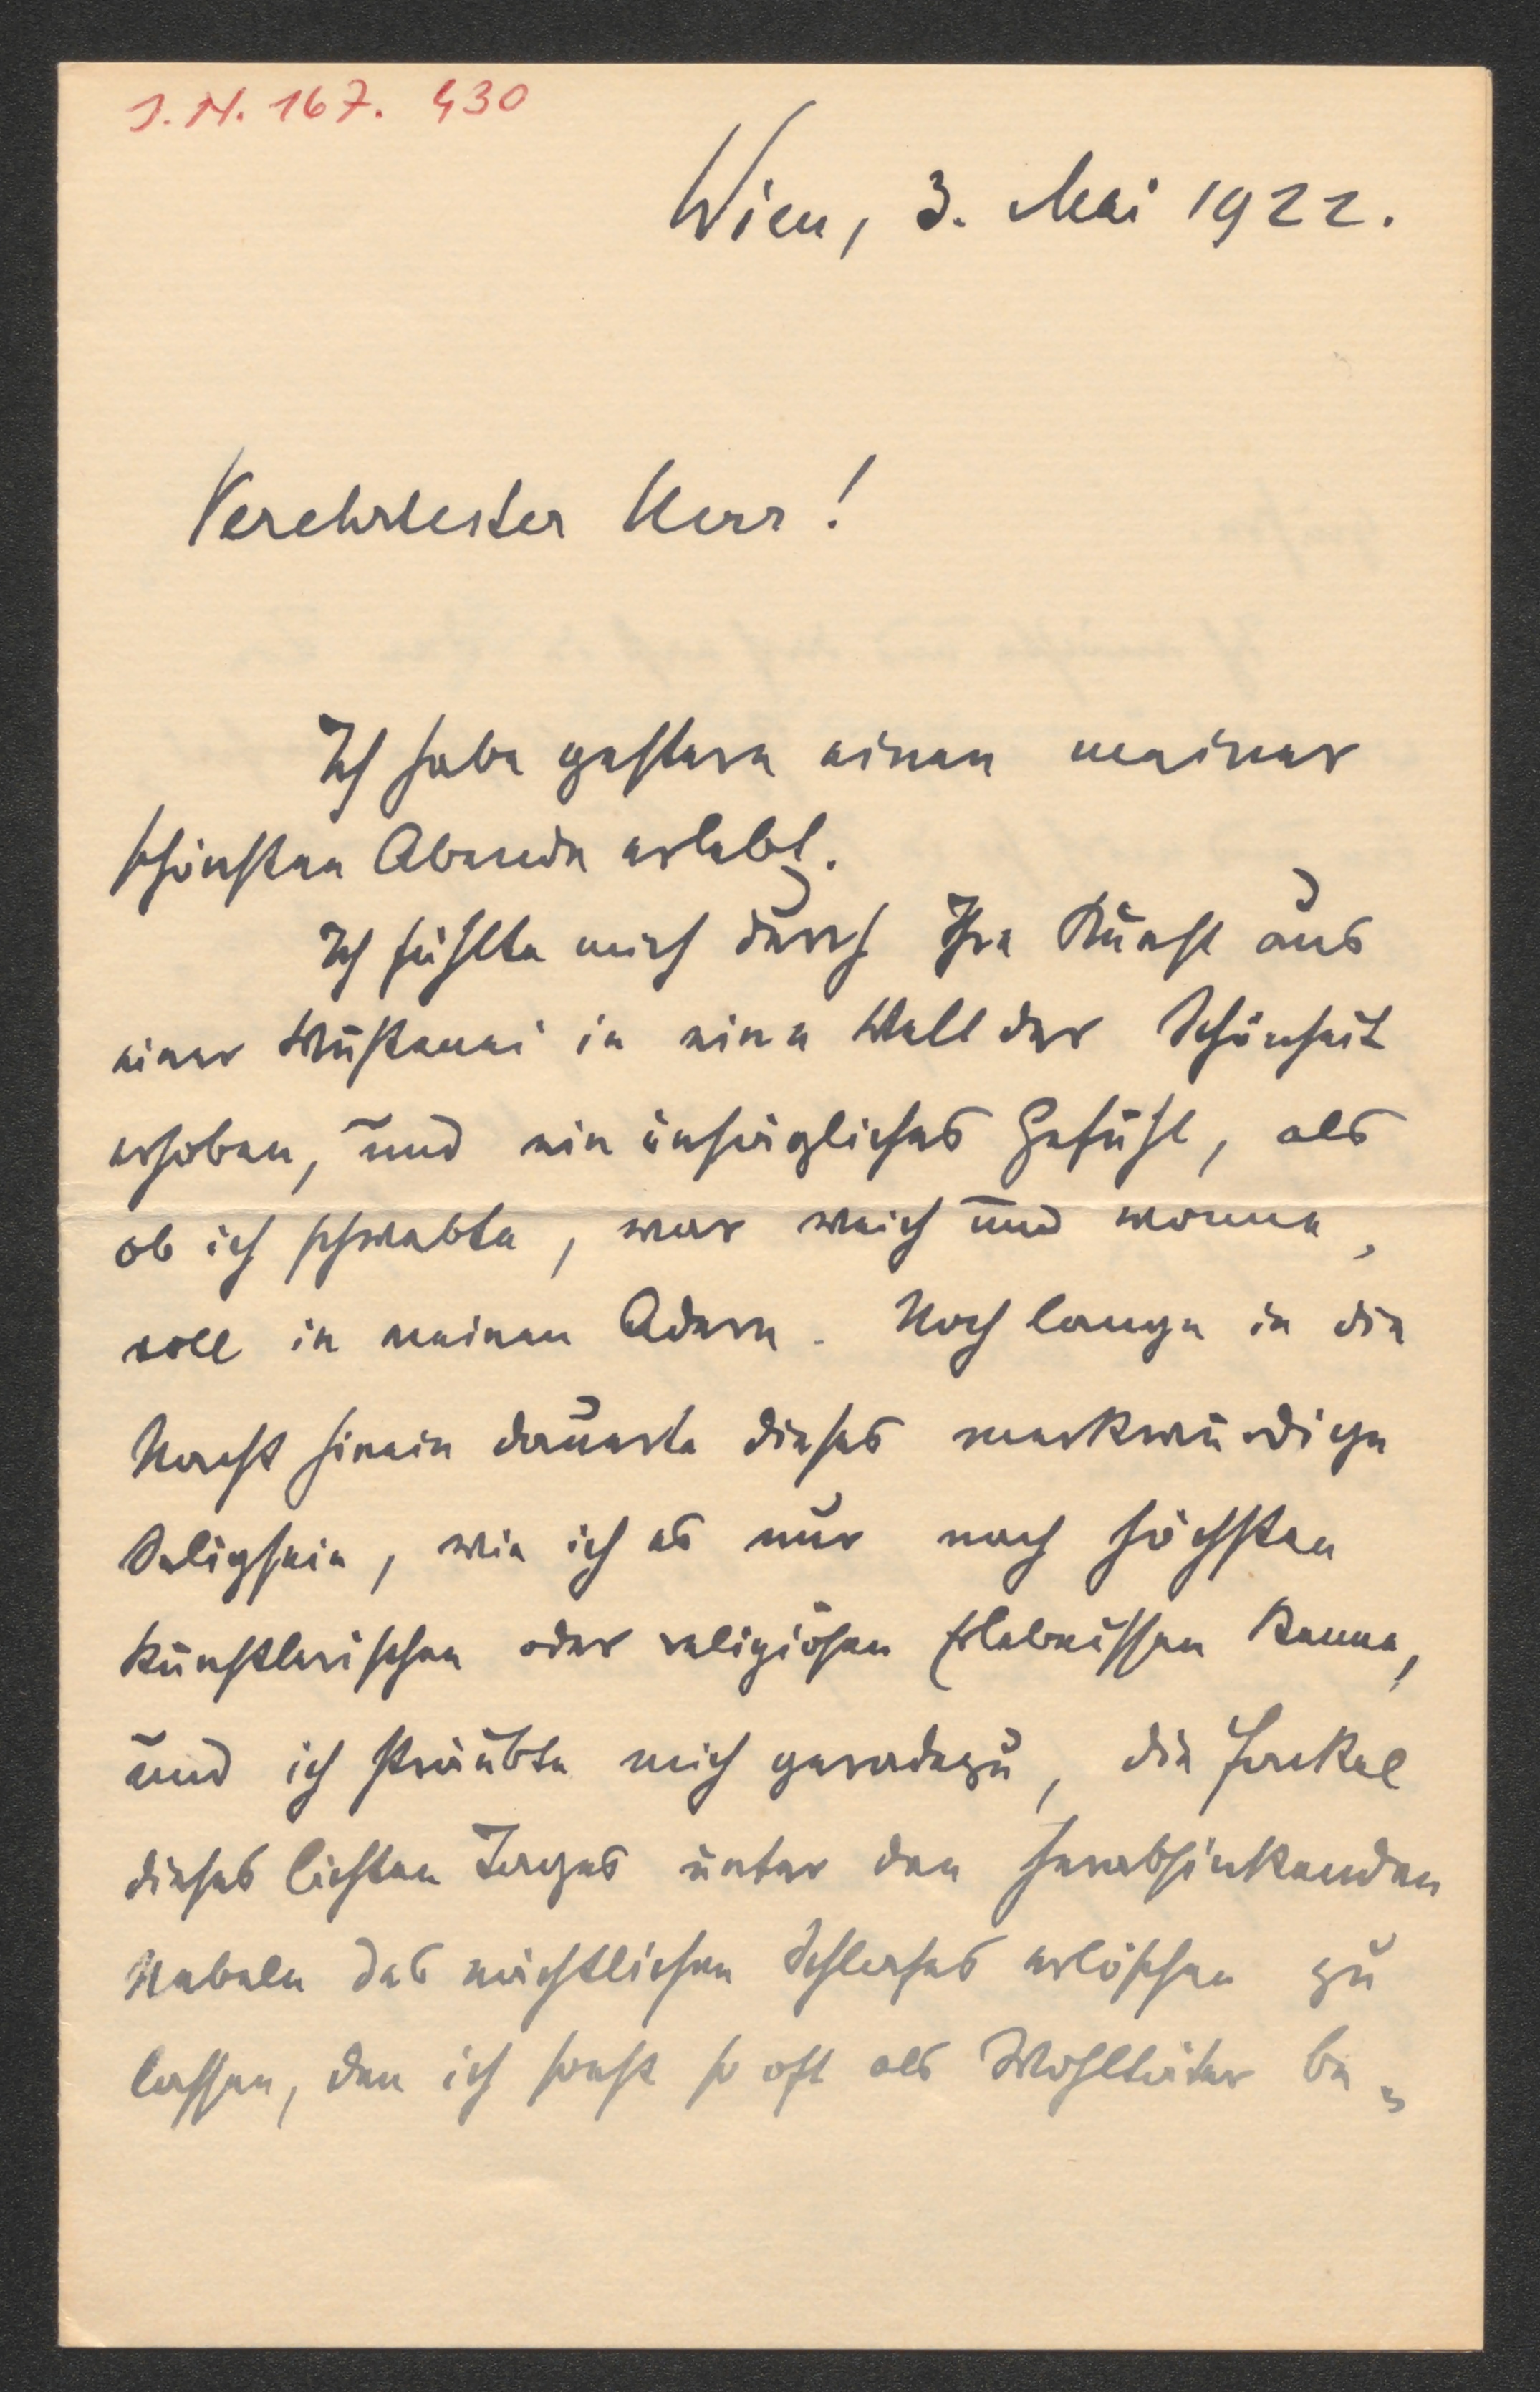 I.N. 167.430
Wien, 3. Mai 1922.
Verehrtester Herr!
Ich habe gestern einen meiner
schönsten Abende erlebt.
Ich fühlte mich durch Ihre Kunst aus
einer Wüstenei in eine Welt der Schönheit
erhoben, und ein unsägliches Gefühl, als
ob ich schwebte, war weich und wonne-
voll in meinen Adern. Noch lange in die
Nacht hinein dauerte dieses merkwürdige
Seligsein, wie ich es nur nach höchsten
künstlerischen oder religiösen Erlebnissen kenne,
und ich sträubte mich geradezu, die Fackel
dieses lichten Tages unter den herabsinkenden
Nebeln des nächtlichen Schlafes erlöschen zu
lassen, den ich sonst so oft als Wohltäter be-